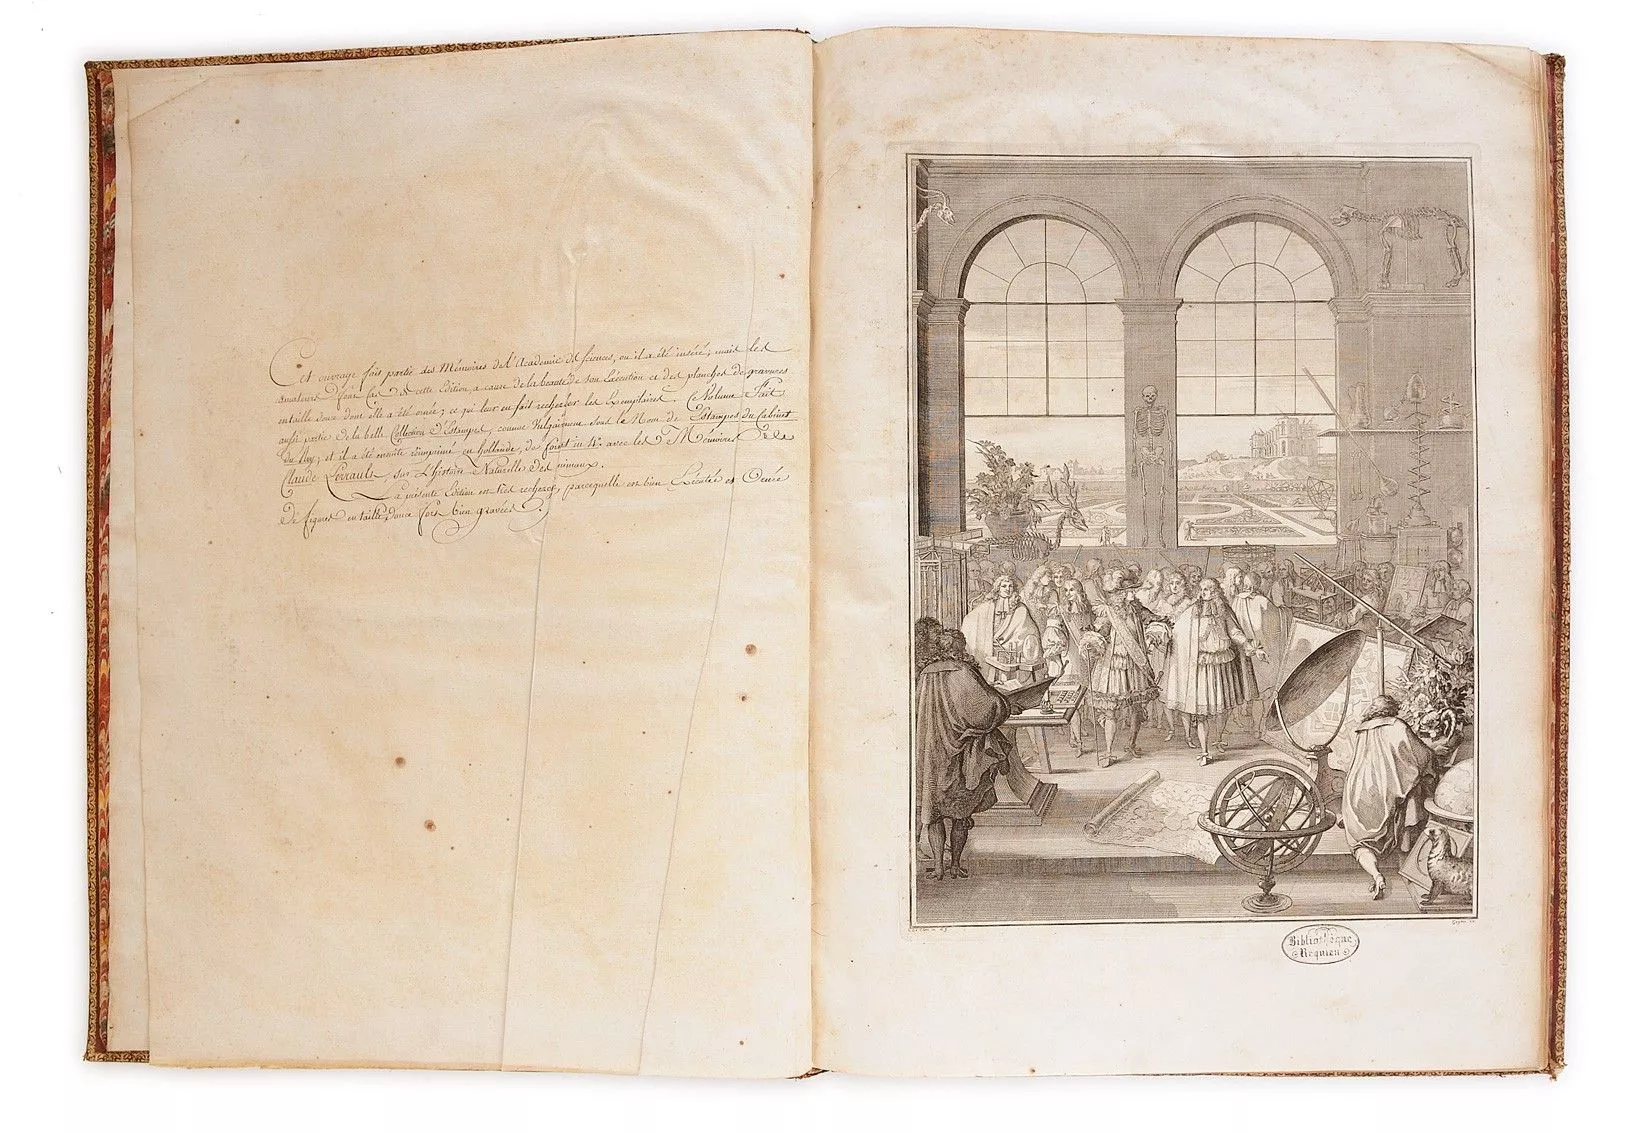 Cet ouvrage fait partie des Mémoires de l'Academie des Sciences, ou il a été inséré; mais les
amateurs font cas de cette Edition a cause de la beauté de son Exécution et des planches de gravures
entaille douce dont elle a été ornée; ce qui leur en fait rechercher les Exemplaires. Ce Volume Fait
aussi partie de la belle Collection d'Estampes, connue Vulgairement sous le Nom de Estampes du Cabinet
du Roy; et il a été ensuite réimprimé en hollande, de format in 4° avec les Mémoires De
Claude Perrault, sur L'histoire Naturelle des animaux.
La présente Edition est très recherch, parcequelle est bien Exécutée et Ornée
De figures en taille douce fort bien gravées.
Bibliothèque
Requien